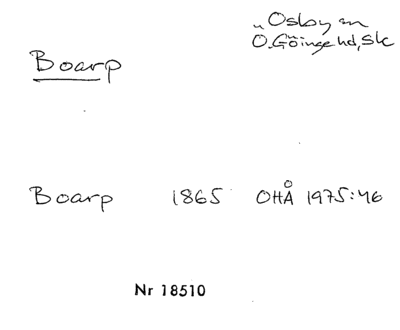 Osby sn
Ö.Göinge hd, Sk
Boarp
Boarp 1865 OHÅ 1975:46
Nr 18510